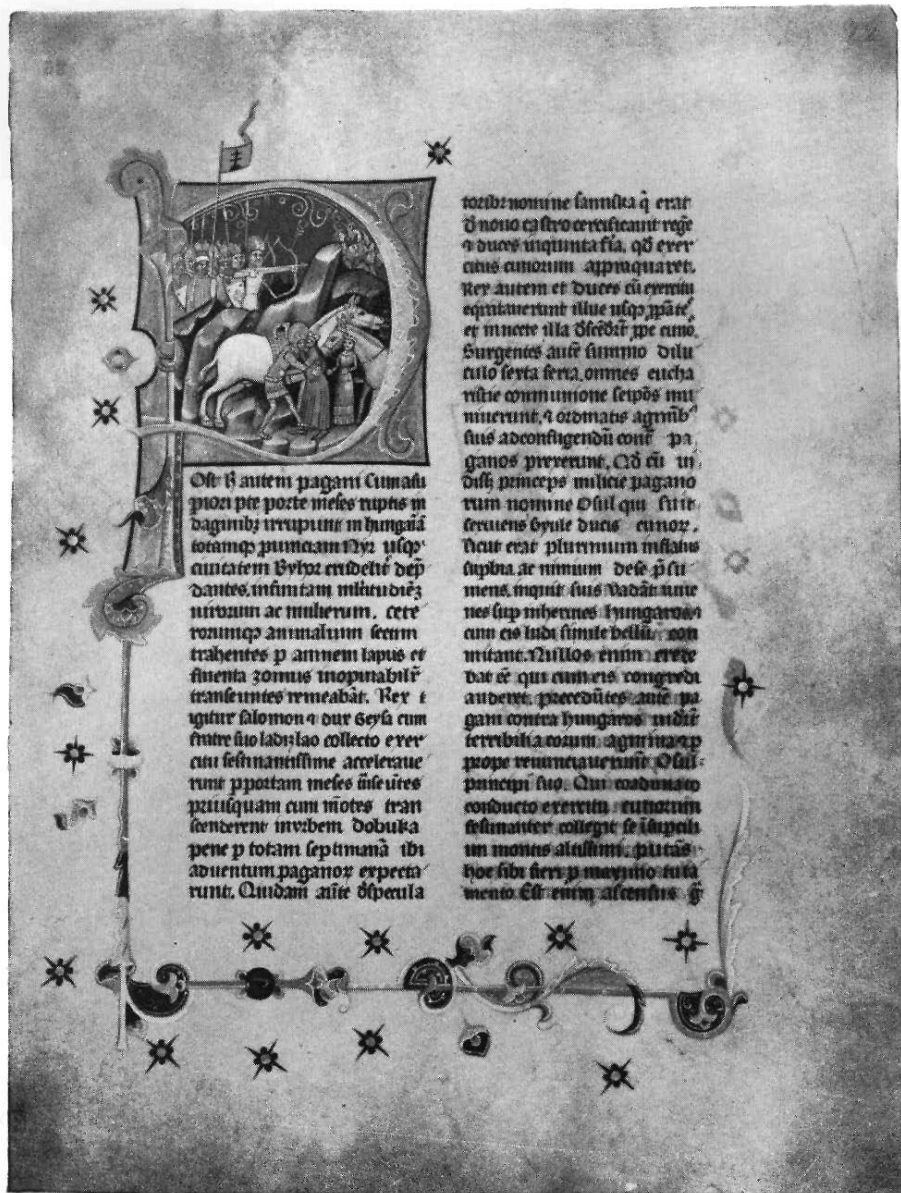 Oſt h autem pagani Cumaſu
piori pte porte meſes ruptis in
daginibꝫ irrupunt in hungaīā
totamqꝫ puinciam Nyr uſqꝫ
ciuitatem Byhor crudelit dep
dantes, infinitam mltitudiēꝫ
uirorum ac mulierum, cete
rorumqꝫ animalium ſecum
trahentes p amnem lapus et
fluenta zomus inopinabilr
tranſeuntes remeabāt. Rex
igitur ſalomon ⁊ dux Geyſa cum
fratre ſuo ladizlao collecto exer
citu feſtinantiſſime accelerаue
runt p portam meſes
priuſquam cum mōtes tran
ſcenderent in vrbem dobuka
pene p totam ſeptimanā ibi
aduentum paganoꝝ expecta
runt. Quidam aūte dſpecula
toribꝫ nomine q̄ erat
d nouo caſtro certificauit regē
⁊ duces in quinta fīa, qd exer
citus cunorum appropiquaret.
Rex autem et duces cū exercitu
equitauerunt illuc uſqꝫ
et in nocte illa pꝑe cuno
Surgentes autē ſummo dilu
culo ſexta feria, omnes eucha
riſtie communione ſeipōs mu
niuerunt, ⁊ ordinatis agminibꝰ
ſuis ad confligendū cont pa
ganos prexerunt. Qd cū ui
diſſꝫ princeps milicie pagano
rum nomine Oſul qui fuit
ſeruiens Gyule ducis cunoꝝ.
ſicut erat plurimum inflatus
ſuꝑbia, ac nimium deſe p̄ſu
mens, inquit ſuis Vadāt iuue
nes ſup inhermes hungaros ⁊
cum eis ludi ſimile bellū, con
mitant. Nullos enim crede
bat eē qui cum eis congredi
auderet. precedūtes autē pa
gani contra hungaros uidīt
terribilia eorum agmina ⁊ p
prope renunciauerunt Oſul
principi ſuo. Qui coadunato
conducto exercitu cunorum
feſtinanter collegit ſe ī ſupcili
um montis altiſſimi, putās
hoc ſibi fieri p maximo tuta
mento Eſt enim aſcenſus